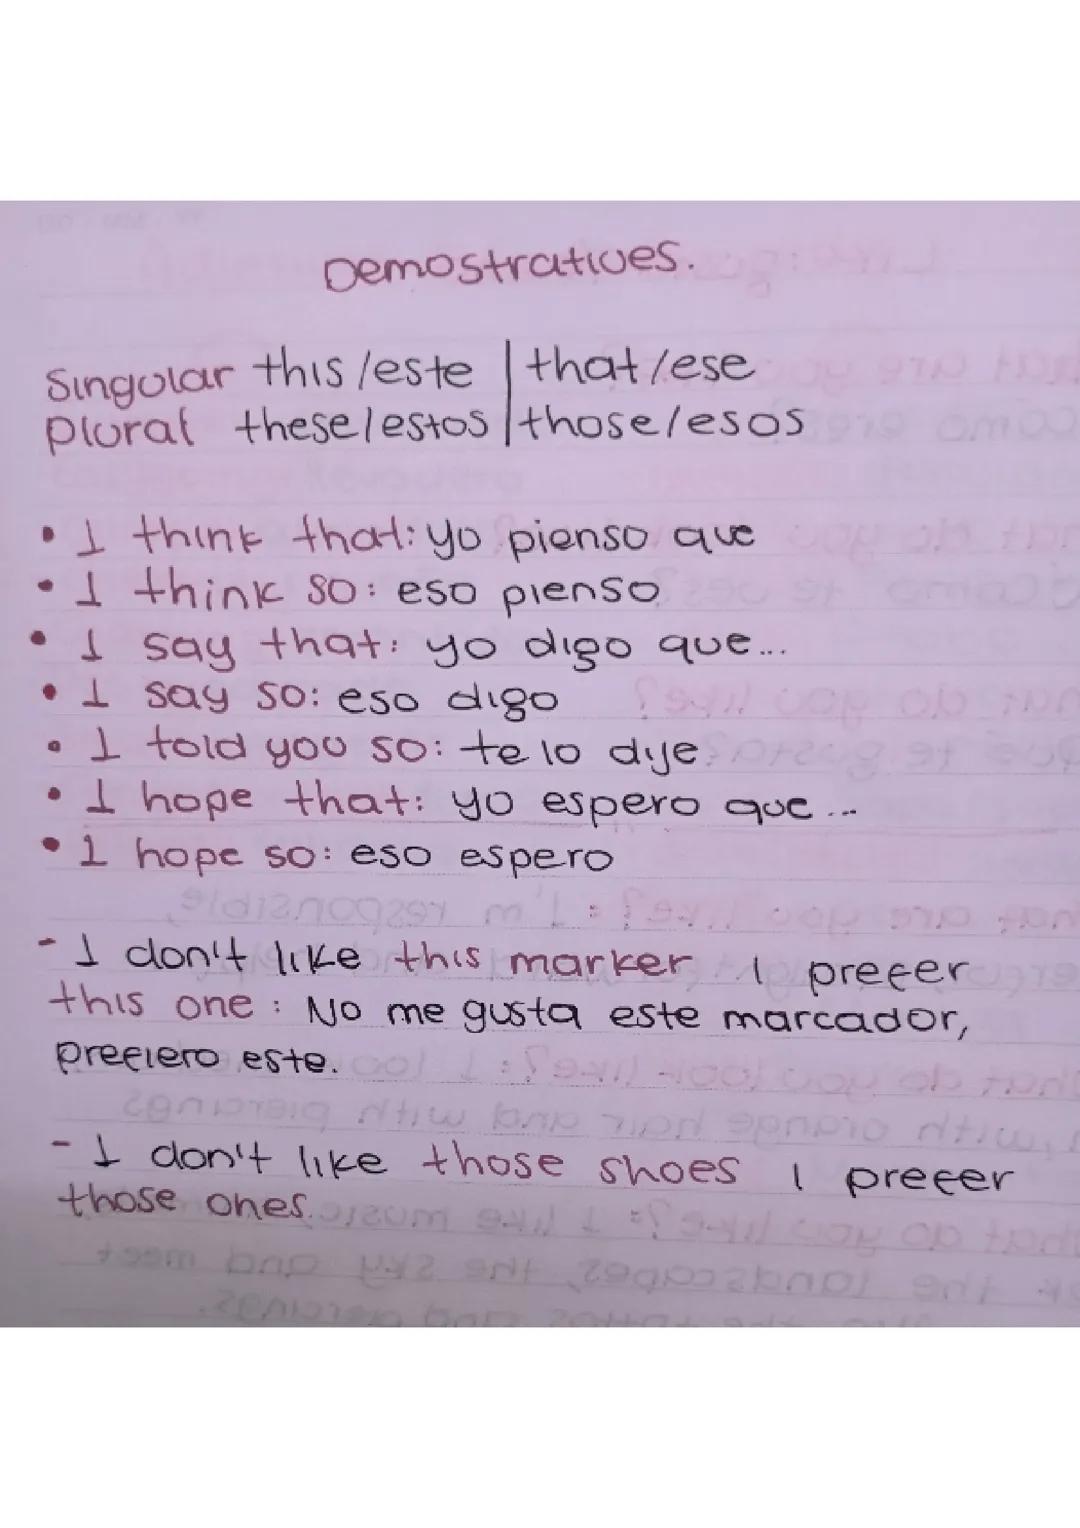 Demostratives.
Singular this/este | that/ese
plural these/estos | those/esos
• I think that: yo pienso que
• I think so: eso pienso
• I say that: yo digo que...
• I say so: eso digo
• I told you so: te lo dije
• I hope that: yo espero que...
• I hope so: eso espero
- I don't like this marker I prefer
this one: No me gusta este marcador,
prefiero este.
- I don't like those shoes I prefer
those ones.